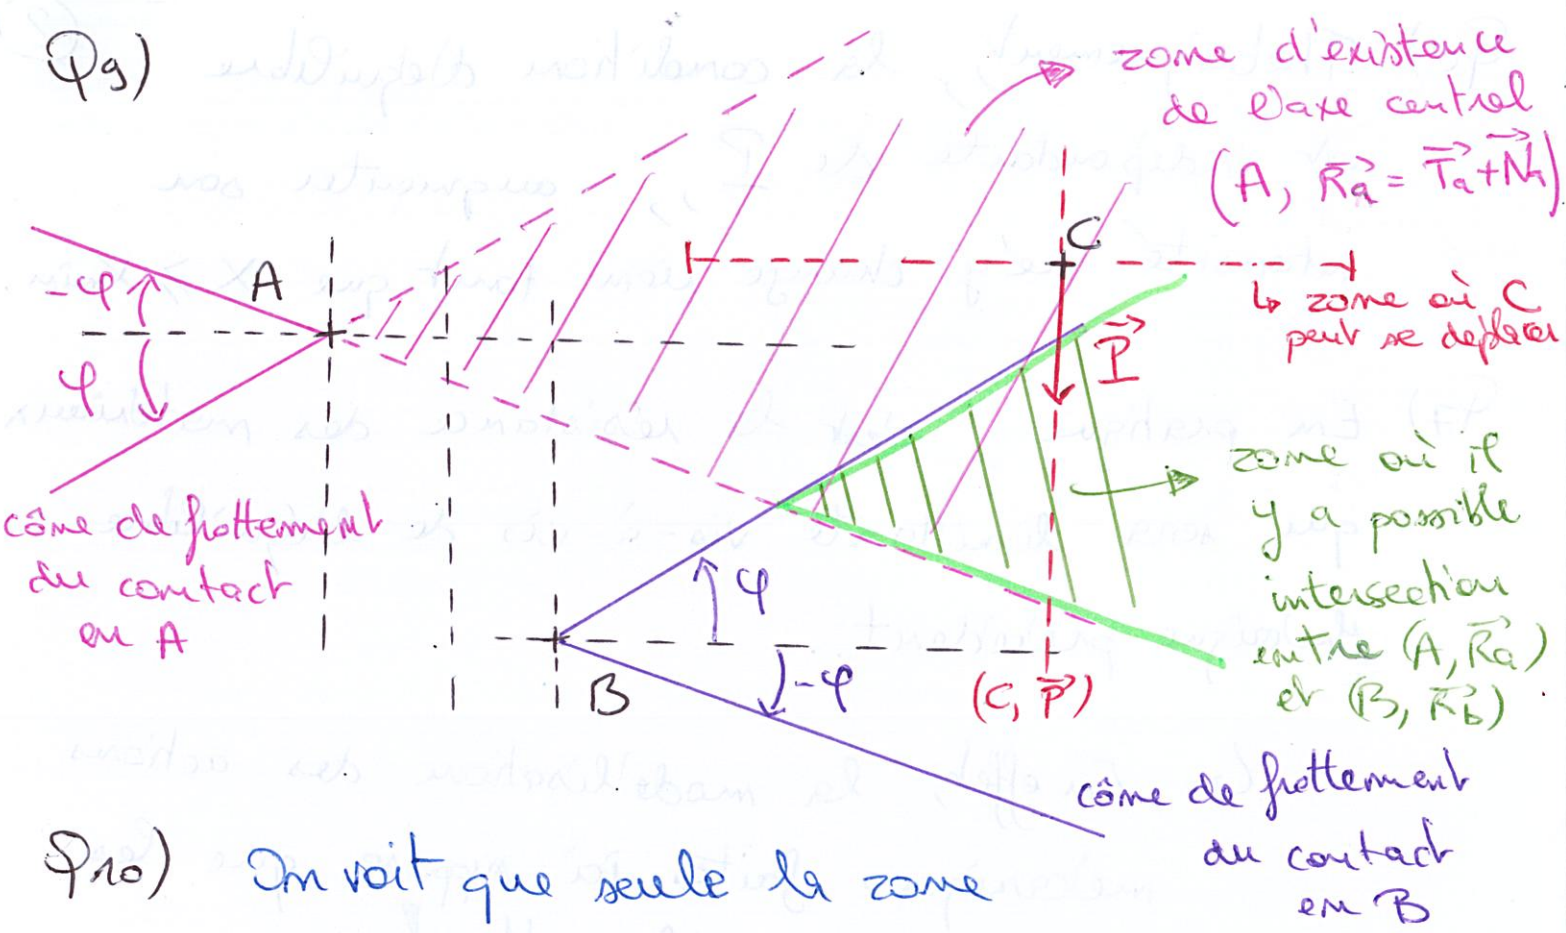 Q9)
zone d'existence
de l'axe central
(A, Ra = Ta + Na)
A
C
-φ
φ
↳ zone où C
peut se déplacer
P
cône de frottement
du contact
en A
zone où il
y a possible
intersection
entre (A, Ra)
et (B, Rb)
φ
-φ
B
(C, P)
cône de frottement
du contact
en B
Q10) On voit que seule la zone